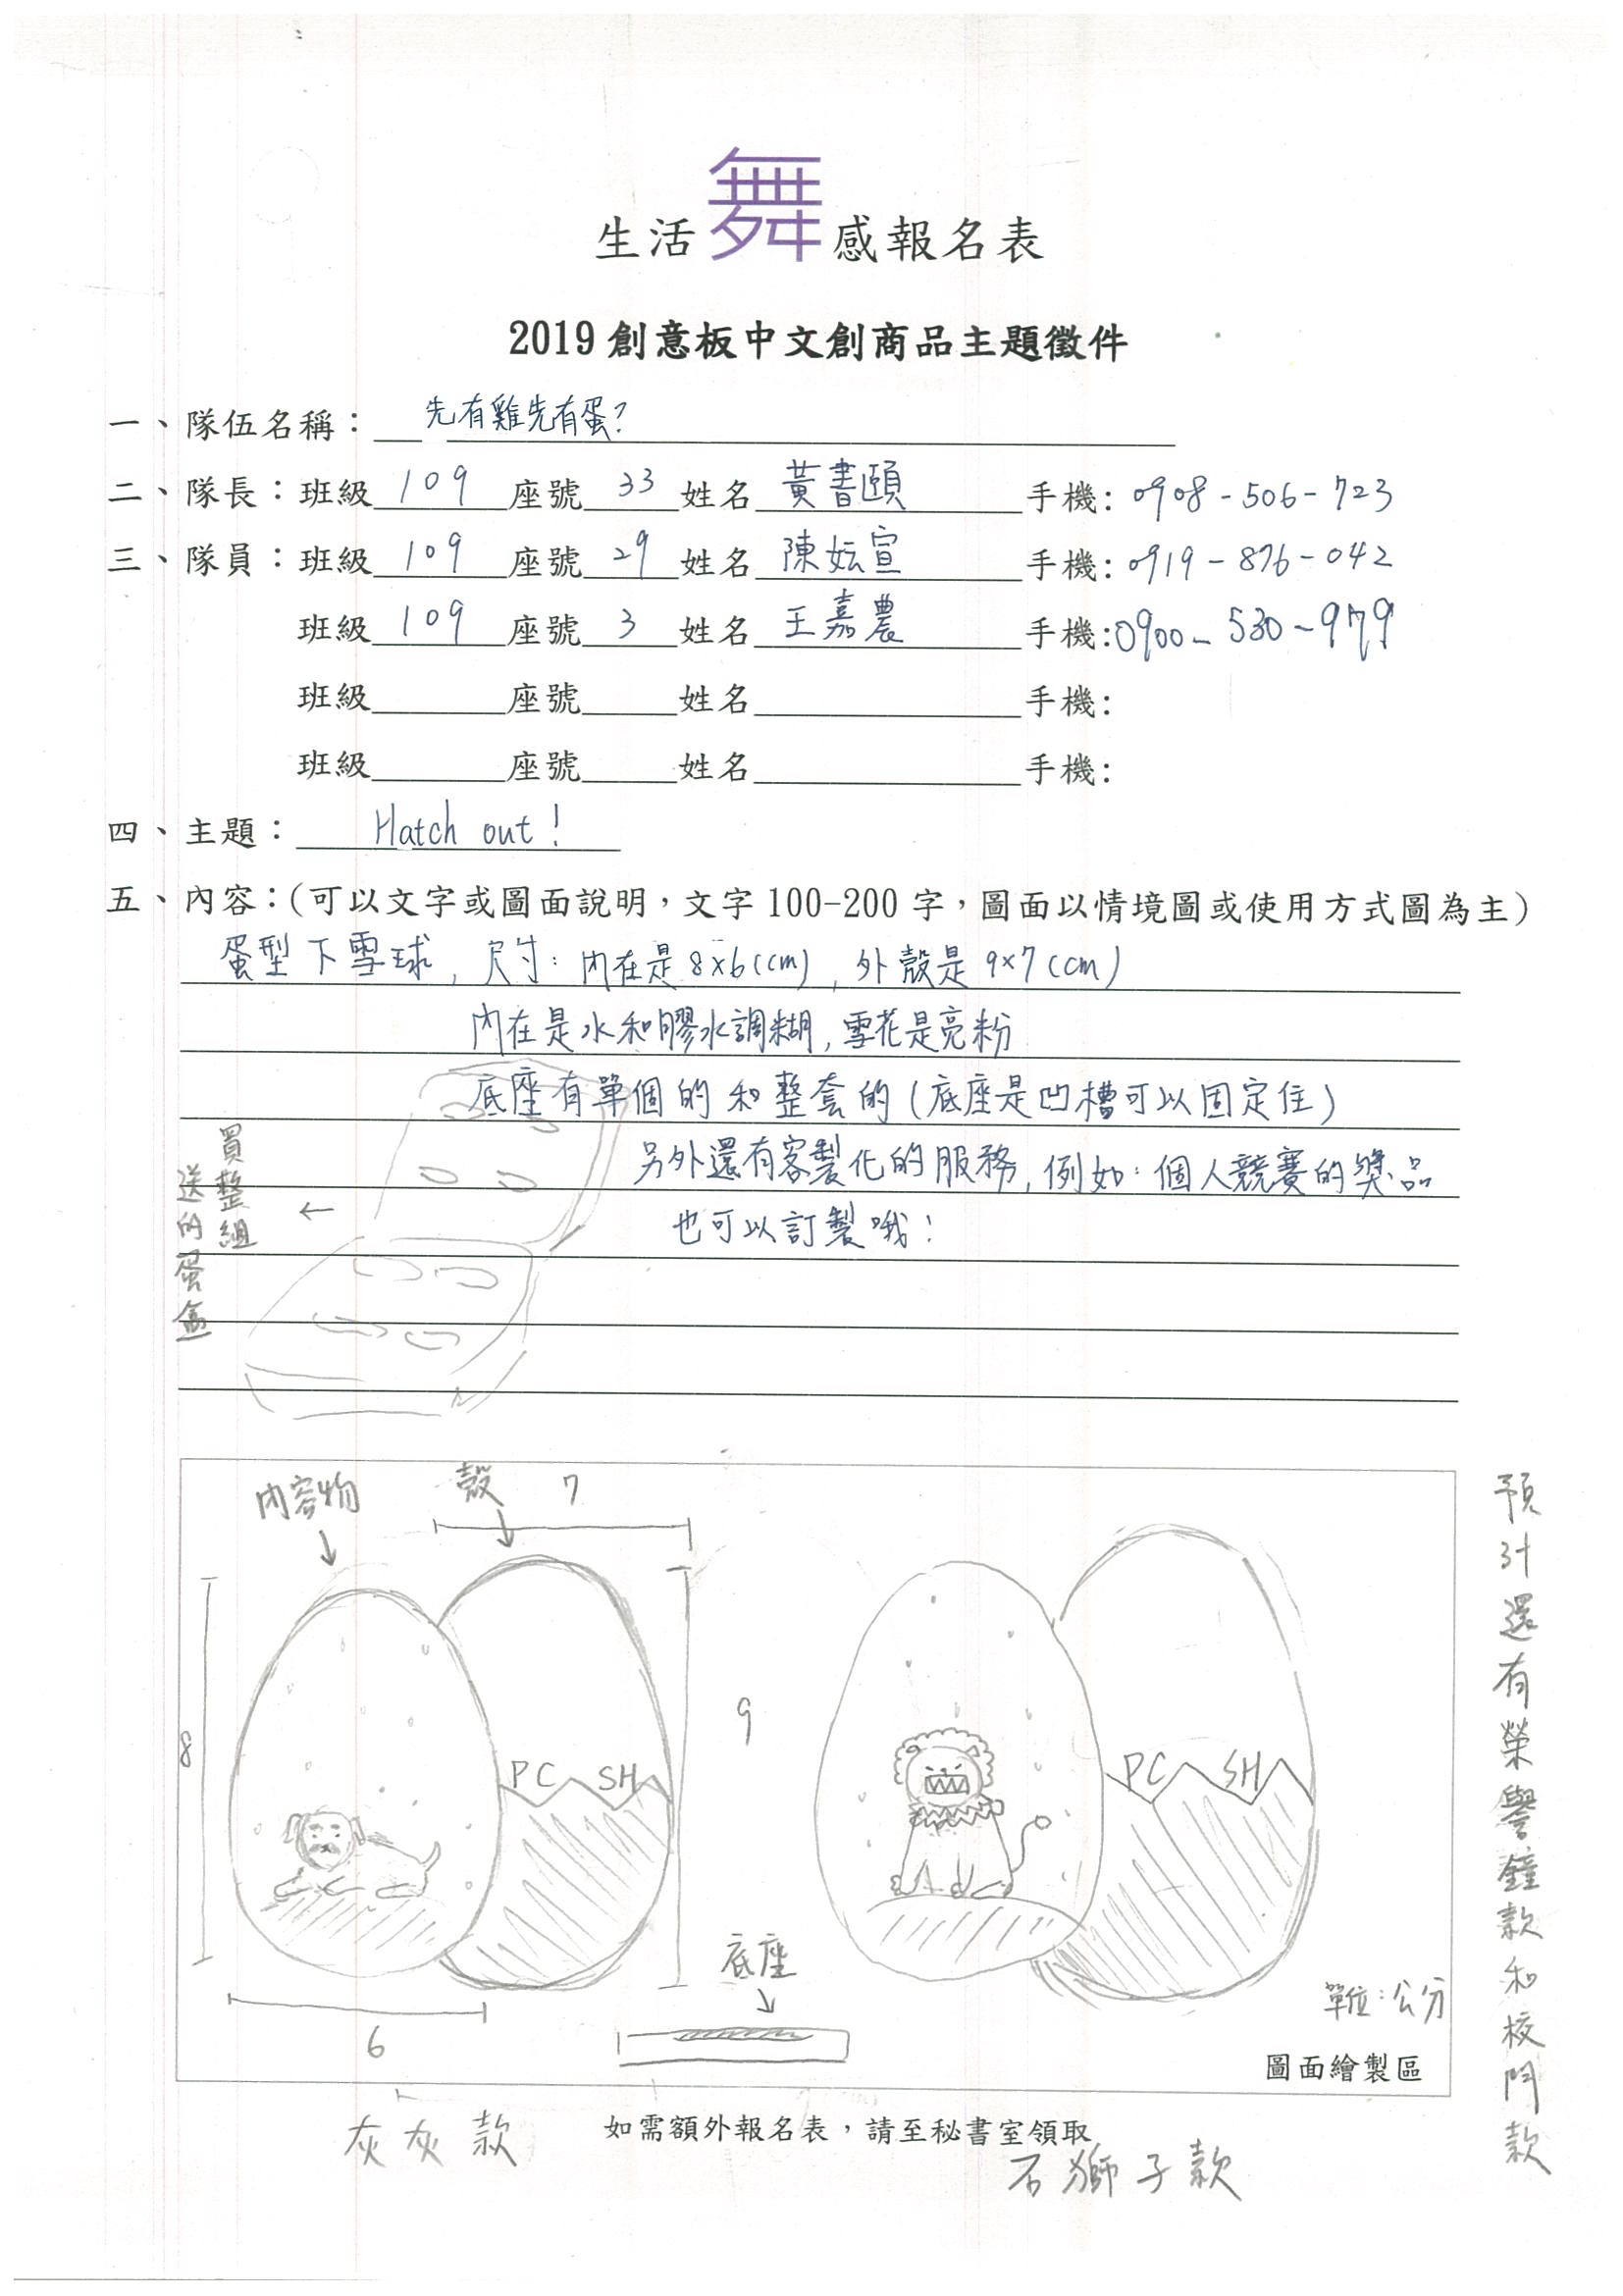 生活舞感報名表
2019創意板中文創商品主題徵件
一、隊伍名稱：先有雞先有蛋?
二、隊長：班級 109 座號 33 姓名 黃書頤 手機: 0908-506-723
三、隊員：班級 109 座號 29 姓名 陳妘宣 手機: 0919-876-042
班級 109 座號 3 姓名 王嘉農 手機:0900-530-979
班級 座號 姓名 手機:
班級 座號 姓名 手機:
四、主題：Hatch out!
五、內容：(可以文字或圖面說明，文字100-200字，圖面以情境圖或使用方式圖為主)
蛋型下雪球, 尺寸: 內在是8×6(cm), 外殼是9×7(cm)
內在是水和膠水調糊, 雪花是亮粉
底座有單個的和整套的(底座是凹槽可以固定住)
另外還有客製化的服務, 例如: 個人競賽的獎品
也可以訂製哦!
買整組
送的蛋盒
←
內容物
殼
7
8
9
6
PC SH
PC SH
底座
單位:公分
圖面繪製區
預計還有榮譽鐘款和校門款
灰灰款
如需額外報名表，請至秘書室領取
石獅子款